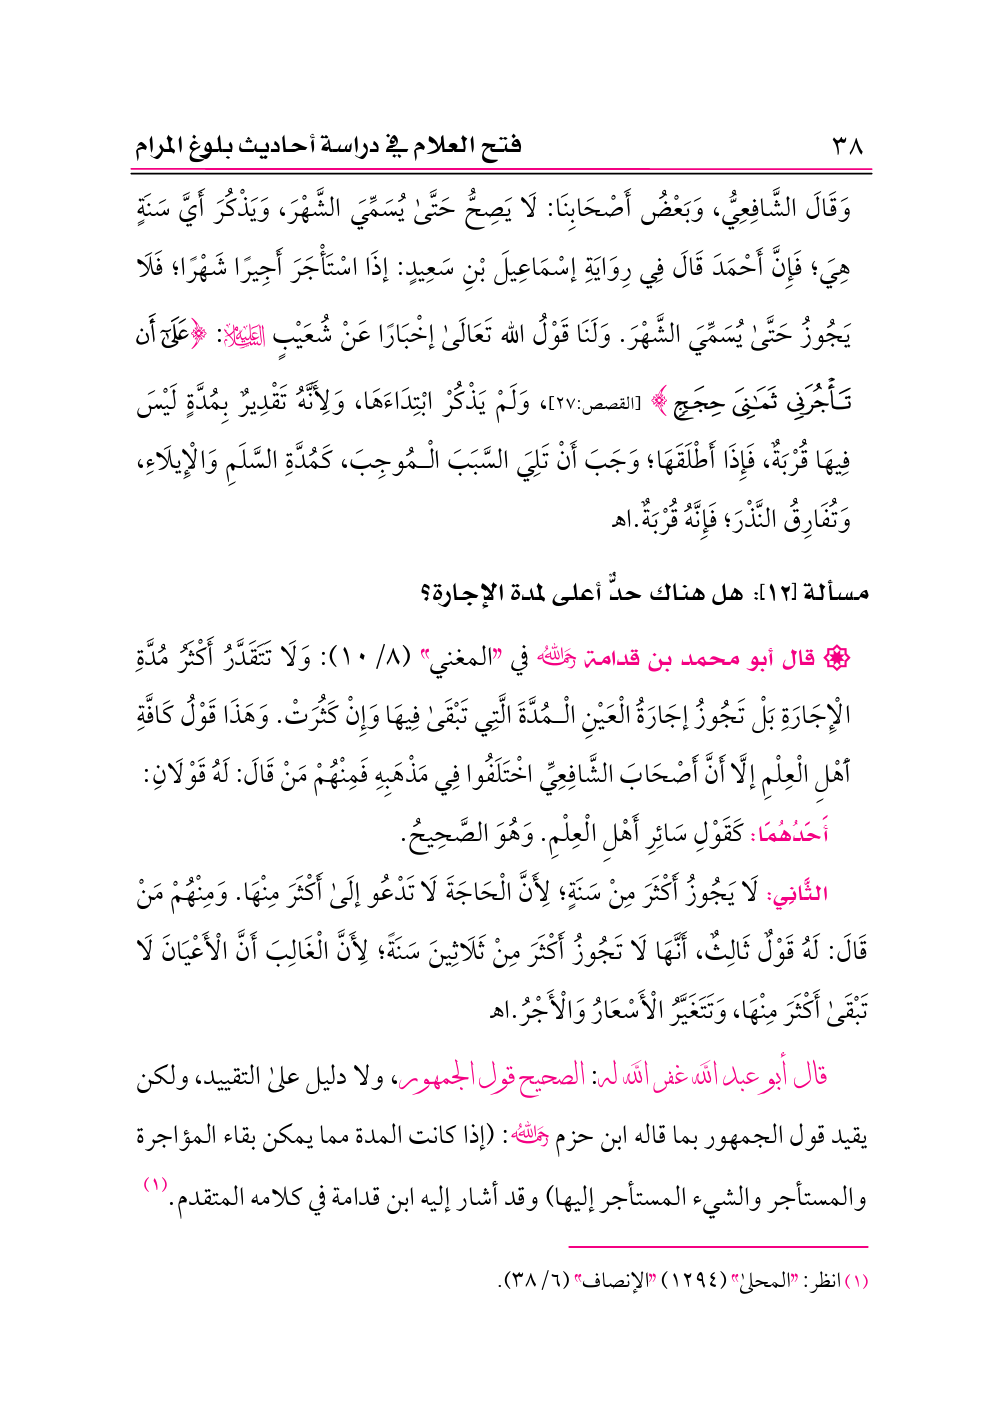 ٣٨ فتح العلام في دراسة أحاديث بلوغ المرام
وَقَالَ الشَّافِعِيُّ، وَبَعْضُ أَصْحَابِنَا: لَا يَصِحُّ حَتَّىٰ يُسَمِّيَ الشَّهْرَ، وَيَذْكُرَ أَيَّ سَنَةٍ
هِيَ؛ فَإِنَّ أَحْمَدَ قَالَ فِي رِوَايَةِ إِسْمَاعِيلَ بْنِ سَعِيدٍ: إذَا اسْتَأْجَرَ أَجِيرًا شَهْرًا؛ فَلَا
يَجُوزُ حَتَّىٰ يُسَمِّيَ الشَّهْرَ. وَلَنَا قَوْلُ الله تَعَالَىٰ إخْبَارًا عَنْ شُعَيْبٍ عَلَيْهِ السَّلَام: ﴿عَلَىٰٓ أَن
تَأْجُرَنِي ثَمَٰنِيَ حِجَجٍ﴾ [القصص:٢٧]، وَلَمْ يَذْكُرْ ابْتِدَاءَهَا، وَلِأَنَّهُ تَقْدِيرٌ بِمُدَّةٍ لَيْسَ
فِيهَا قُرْبَةٌ، فَإِذَا أَطْلَقَهَا؛ وَجَبَ أَنْ تَلِيَ السَّبَبَ الْـمُوجِبَ، كَمُدَّةِ السَّلَمِ وَالْإِيلَاءِ،
وَتُفَارِقُ النَّذْرَ؛ فَإِنَّهُ قُرْبَةٌ.اهـ
مسألة [١٢]: هل هناك حدٌّ أعلى لمدة الإجارة؟
قال أبو محمد بن قدامة رَحِمَهُ اللَّهُ في "المغني" (٨/ ١٠): وَلَا تَتَقَدَّرُ أَكْثَرُ مُدَّةِ
الْإِجَارَةِ بَلْ تَجُوزُ إجَارَةُ الْعَيْنِ الْـمُدَّةَ الَّتِي تَبْقَىٰ فِيهَا وَإِنْ كَثُرَتْ. وَهَذَا قَوْلُ كَافَّةِ
أَهْلِ الْعِلْمِ إلَّا أَنَّ أَصْحَابَ الشَّافِعِيِّ اخْتَلَفُوا فِي مَذْهَبِهِ فَمِنْهُمْ مَنْ قَالَ: لَهُ قَوْلَانِ:
أَحَدُهُمَا: كَقَوْلِ سَائِرِ أَهْلِ الْعِلْمِ. وَهُوَ الصَّحِيحُ.
الثَّانِي: لَا يَجُوزُ أَكْثَرَ مِنْ سَنَةٍ؛ لِأَنَّ الْحَاجَةَ لَا تَدْعُو إلَىٰ أَكْثَرَ مِنْهَا. وَمِنْهُمْ مَنْ
قَالَ: لَهُ قَوْلٌ ثَالِثٌ، أَنَّهَا لَا تَجُوزُ أَكْثَرَ مِنْ ثَلَاثِينَ سَنَةً؛ لِأَنَّ الْغَالِبَ أَنَّ الْأَعْيَانَ لَا
تَبْقَىٰ أَكْثَرَ مِنْهَا، وَتَتَغَيَّرُ الْأَسْعَارُ وَالْأَجْرُ.اهـ
قال أبو عبد الله غفر الله له: الصحيح قول الجمهور، ولا دليل علىٰ التقييد، ولكن
يقيد قول الجمهور بما قاله ابن حزم رَحِمَهُ اللَّهُ: (إذا كانت المدة مما يمكن بقاء المؤاجرة
والمستأجر والشيء المستأجر إليها) وقد أشار إليه ابن قدامة في كلامه المتقدم.(١)
(١) انظر: "المحلىٰ" (١٢٩٤) "الإنصاف" (٦/ ٣٨).